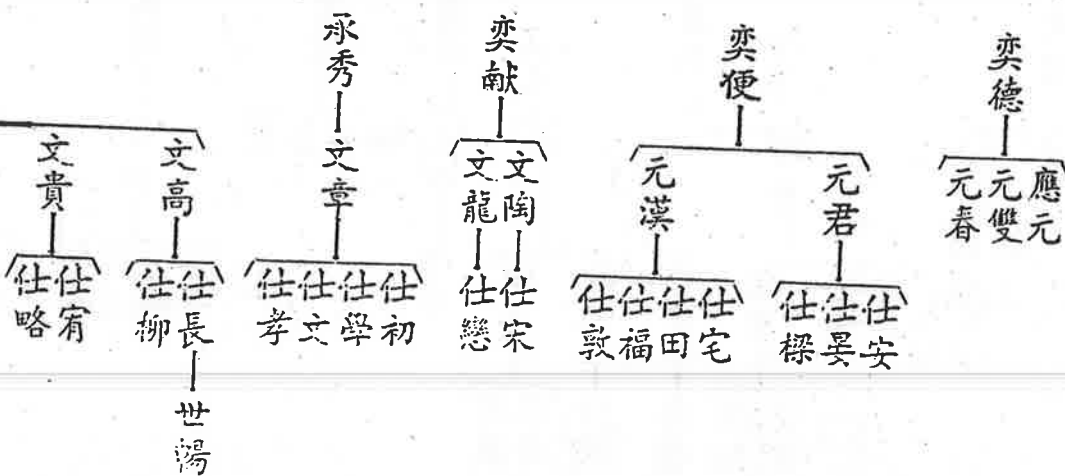 奕德
應元
元雙
元春
奕便
元君
仕安
仕晏
仕樑
元漢
仕宅
仕田
仕福
仕敦
奕献
文陶
仕宋
文龍
仕戀
承秀
文章
仕初
仕學
仕文
仕孝
文高
仕長
世暢
仕柳
文貴
仕宥
仕略